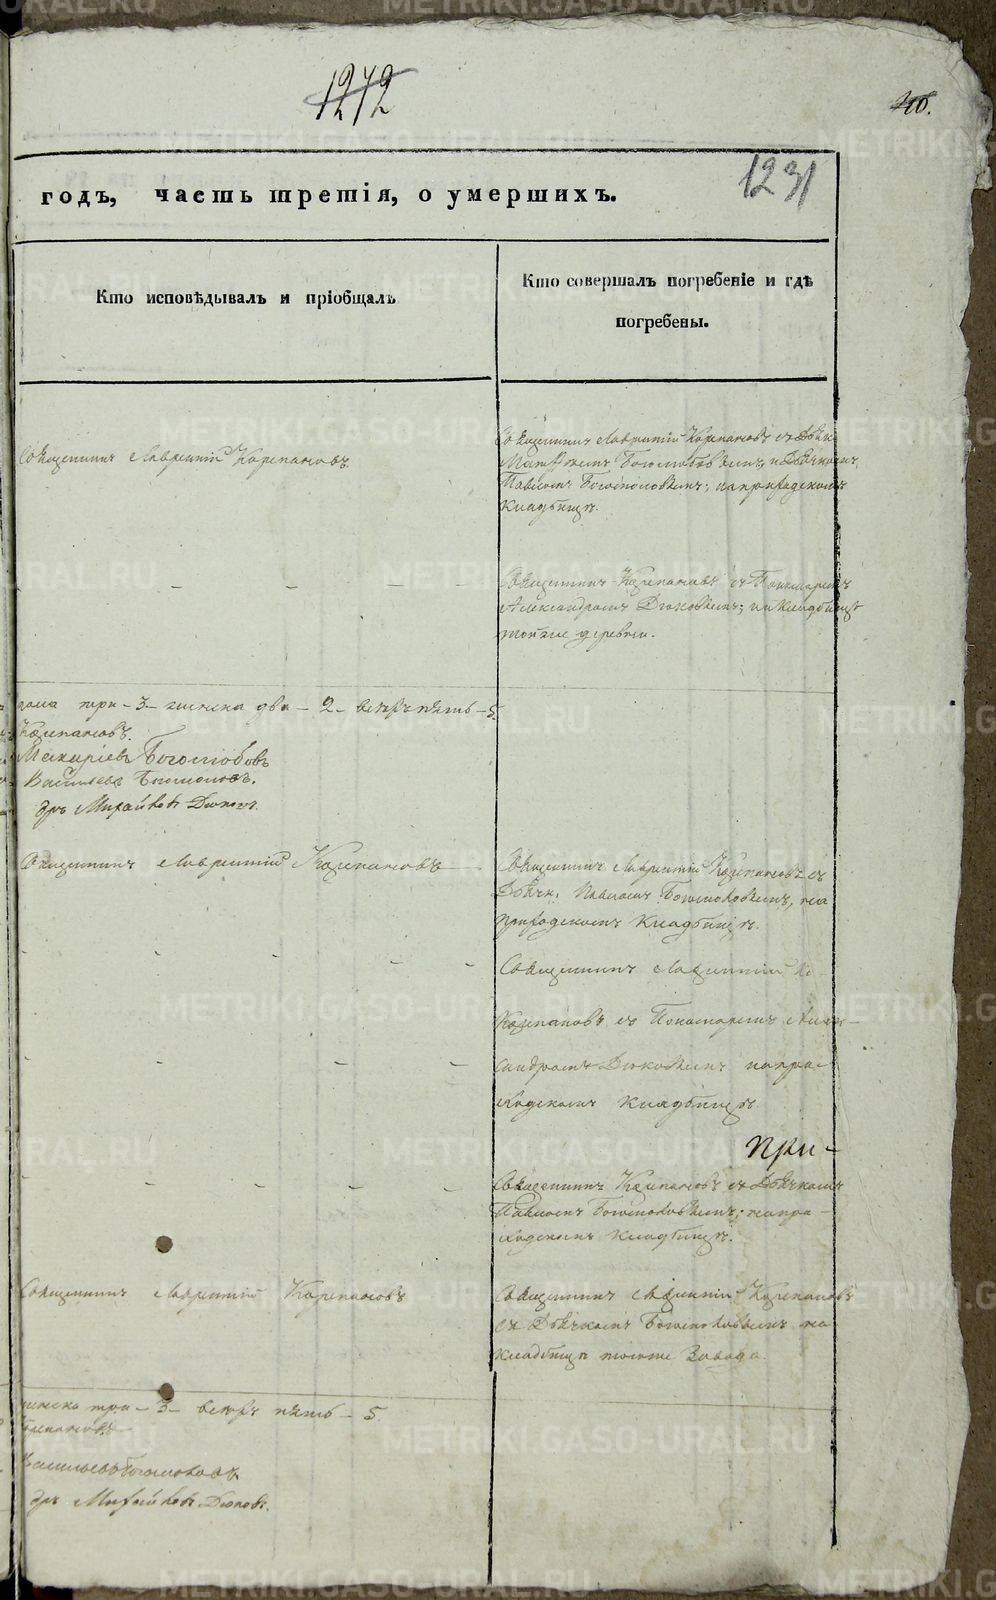 1272
40.
1231
годъ, часть третія, о умершихъ.
Кто исповѣдывалъ и пріобщалъ
Кто совершалъ погребеніе и гдѣ
погребены.
Священникъ Лаврентій Карпановъ
Священникъ Лаврентій Карпановъ съ
Богословскимъ, и Дьячкомъ
Павломъ; на приходскомъ
Кладбищѣ.
Священникъ Карпановъ съ Пономаремъ
Александромъ Дюковымъ; на Кладбищѣ
тойже деревни.
три - 3 - женска два - 2 - всѣхъ пять - 5.
Карпановъ.
Васильевъ
Михайловъ Дюковъ.
Священникъ Лаврентій Карпановъ
Священникъ Лаврентій Карпановъ съ
Дьячк. Павломъ, на
приходскомъ Кладбищѣ.
Священникъ Лаврентій
Карпановъ съ Пономаремъ Алек-
сандромъ Дюковымъ на при-
ходскомъ Кладбищѣ
При-
Священникъ Карпановъ съ Дьячкомъ
Павломъ; на при-
ходскомъ Кладбищѣ.
Священникъ Лаврентій Карпановъ
Священникъ Лаврентій Карпановъ
съ Дьячкомъ на
Кладбищѣ тогоже Завода.
женска три - 3 - всѣхъ пять - 5.
Карпановъ
Васильевъ
Михайловъ Дюковъ.
METRIKI.GASO-URAL.RU